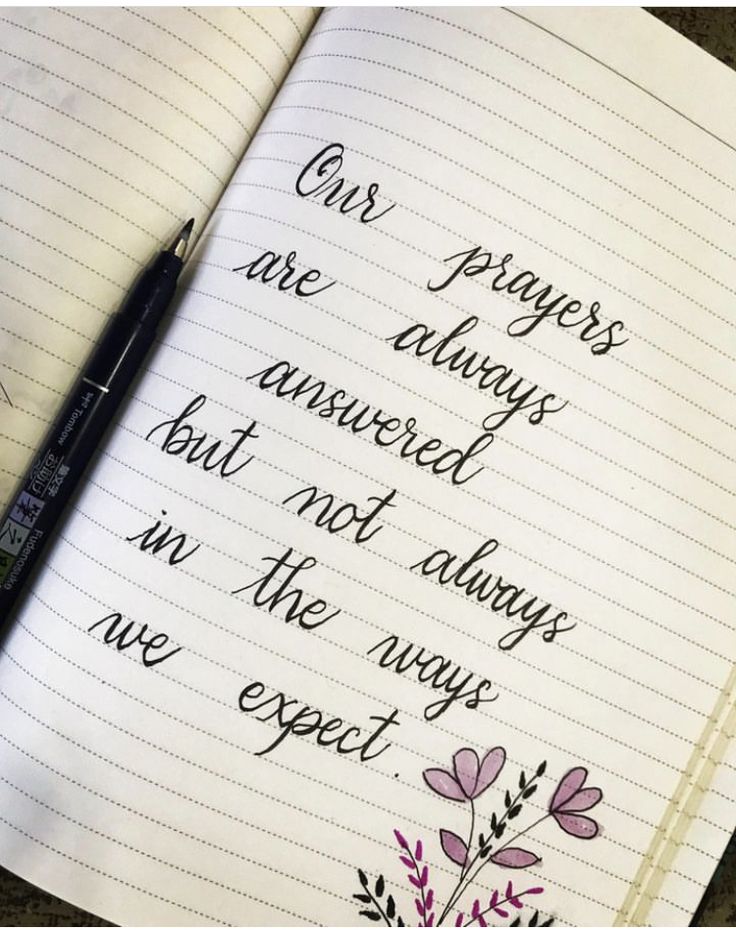 Our prayers
are always
answered
but not always
in the ways
we expect.
Tombow
Fudenosuke